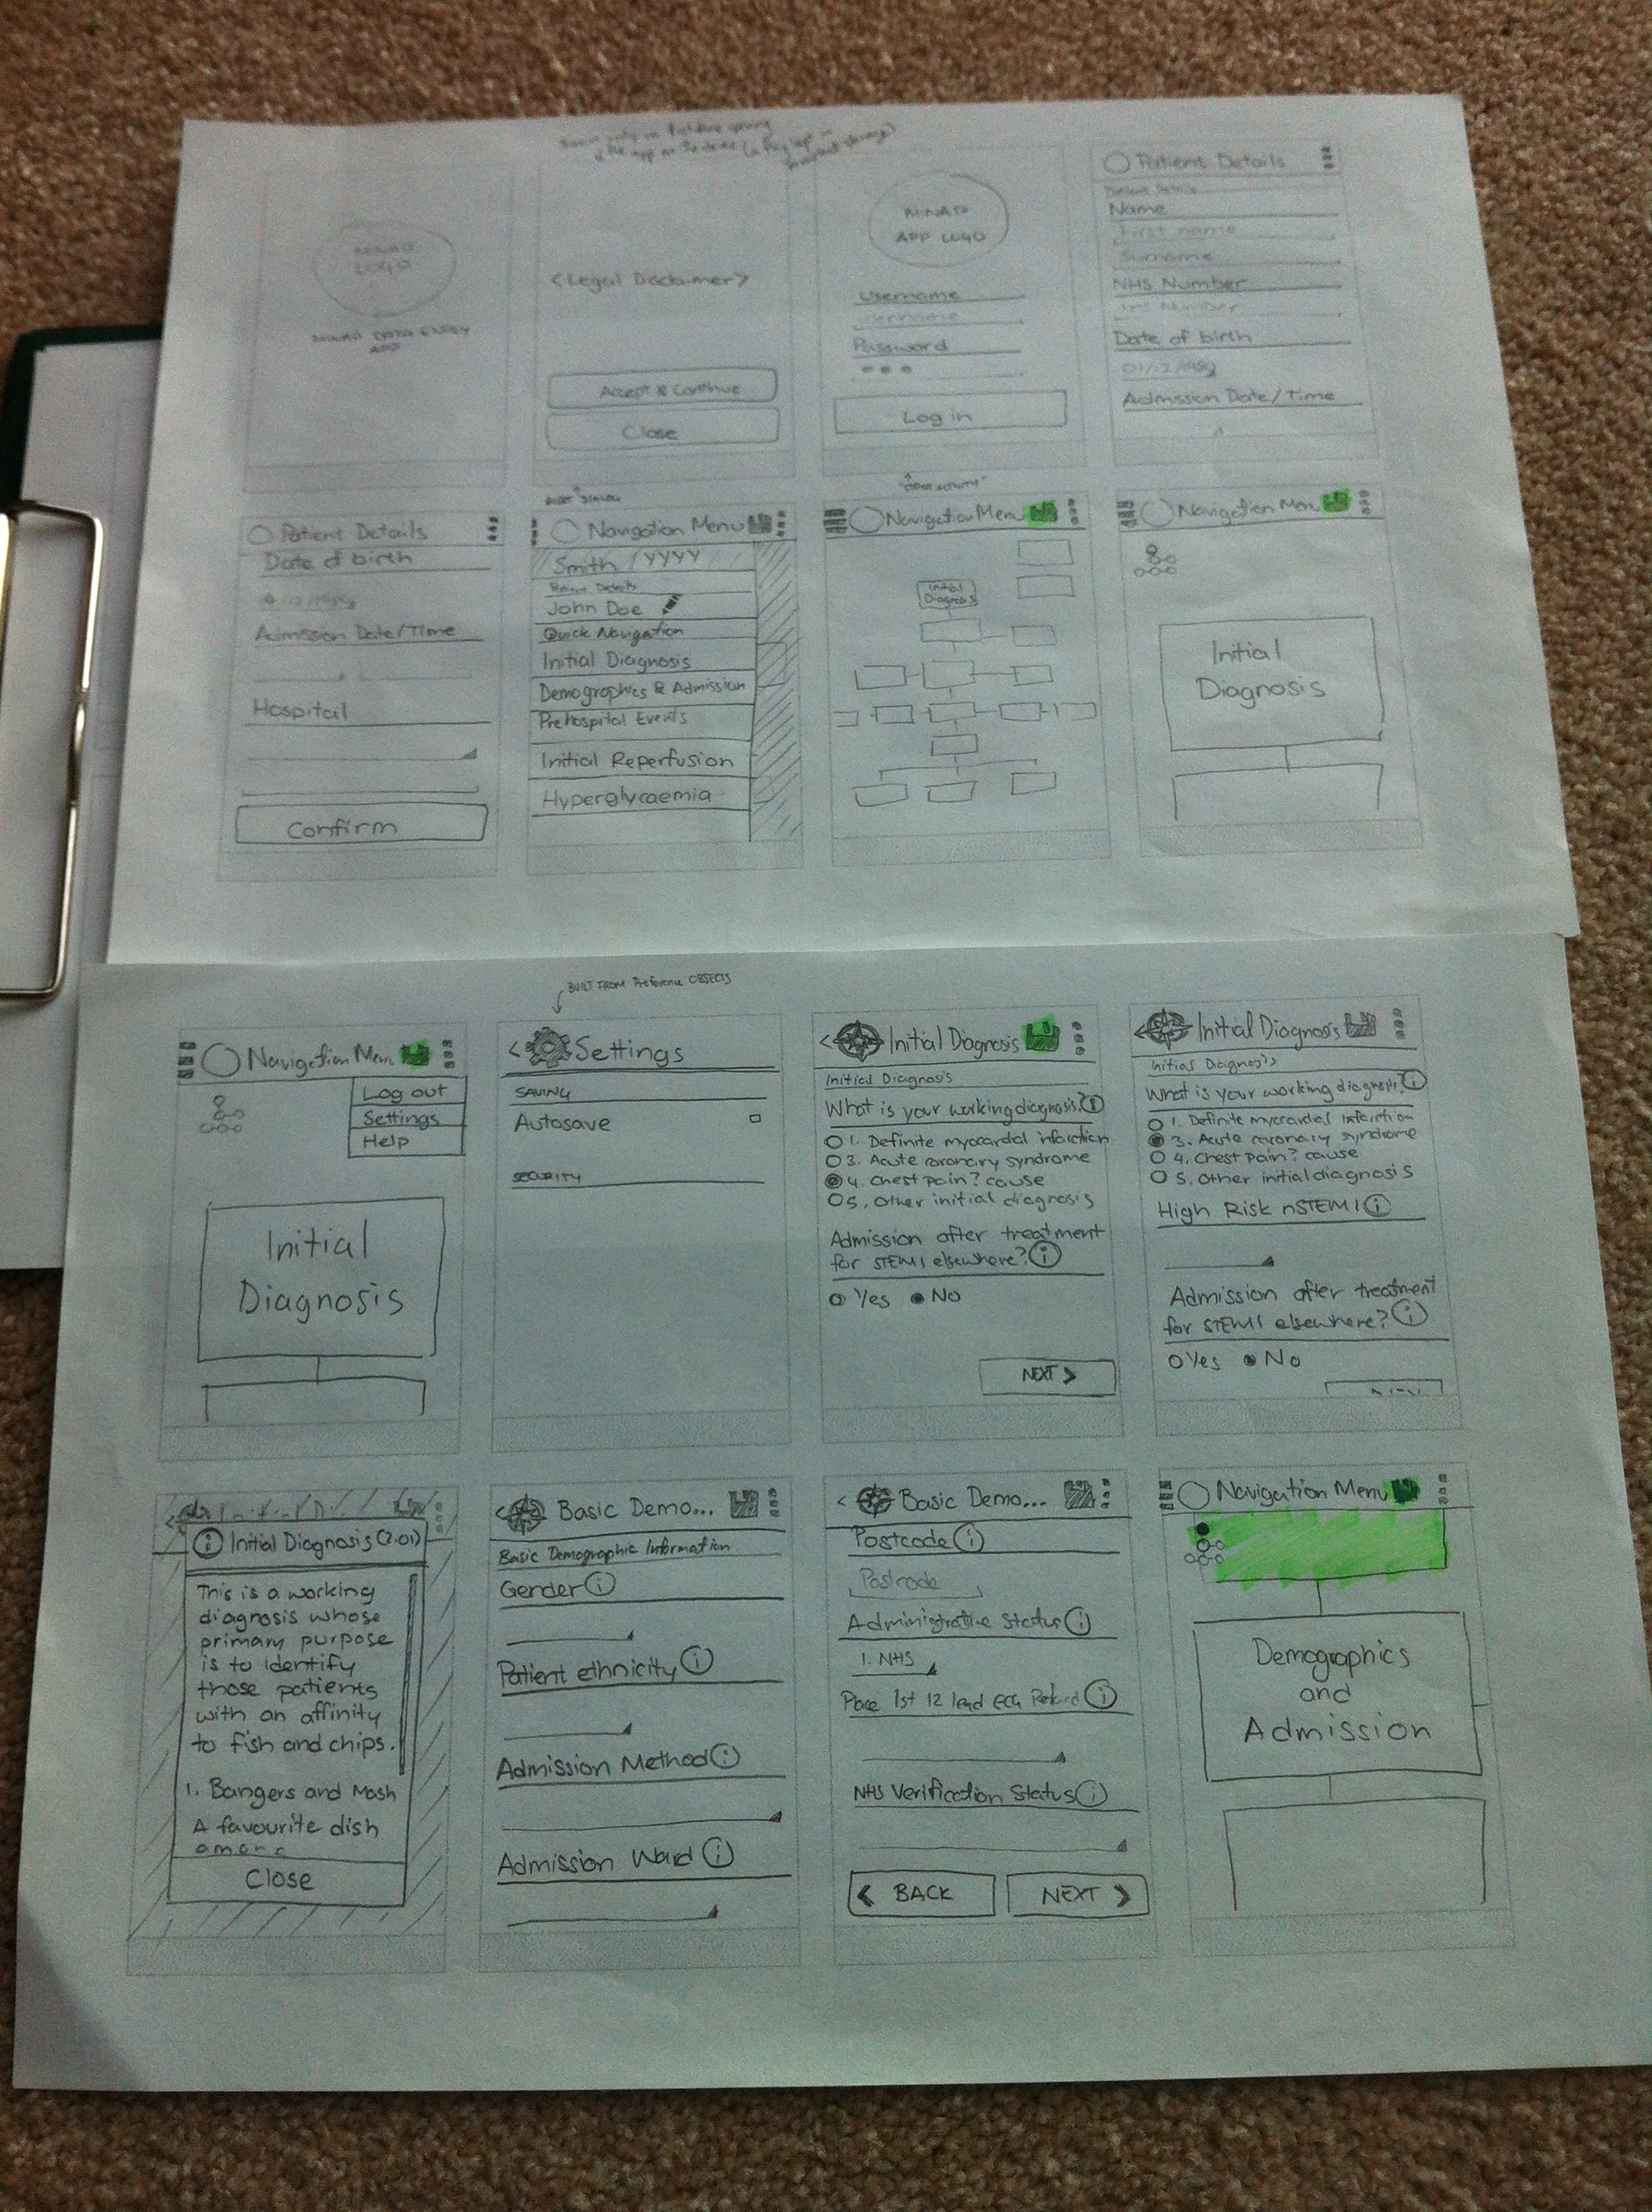 MINAP
LOGO
MINAP DATA ENTRY
APP
<Legal Disclaimer>
Accept & Continue
Close
MINAP
APP LOGO
Username
Username
Password
Log in
Patient Details
Patient Details
Name
First name
Surname
NHS Number
NHS Number
Date of birth
Admission Date/Time
Patient Details
Date of birth
Admission Date/Time
Hospital
Confirm
Navigation Menu
Smith / YYYY
Patient Details
John Doe
Quick Navigation
Initial Diagnosis
Demographics & Admission
Prehospital Events
Initial Reperfusion
Hyperglycaemia
Navigation Menu
Initial
Diagnosis
Navigation Menu
Initial
Diagnosis
Navigation Menu
Log out
Settings
Help
Initial
Diagnosis
BUILT FROM Preference OBJECTS
< Settings
SAVING
Autosave
SECURITY
< Initial Diagnosis
Initial Diagnosis
What is your working diagnosis? i
1. Definite myocardial infarction
3. Acute coronary syndrome
4. Chest pain? cause
5. Other initial diagnosis
Admission after treatment
for STEMI elsewhere? i
Yes No
NEXT >
< Initial Diagnosis
Initial Diagnosis
What is your working diagnosis? i
1. Definite myocardial infarction
3. Acute coronary syndrome
4. Chest pain? cause
5. Other initial diagnosis
High Risk nSTEMI i
Admission after treatment
for STEMI elsewhere? i
Yes No
i Initial Diagnosis (2.01)
This is a working
diagnosis whose
primary purpose
is to identify
those patients
with an affinity
to fish and chips.
1. Bangers and Mash
A favourite dish
among
Close
< Basic Demo...
Basic Demographic Information
Gender i
Patient ethnicity i
Admission Method i
Admission Ward i
< Basic Demo...
Postcode i
Postcode
Administrative Status i
1. NHS
Place 1st 12 lead ECG i
NHS Verification Status i
< BACK
NEXT >
Navigation Menu
Demographics
and
Admission